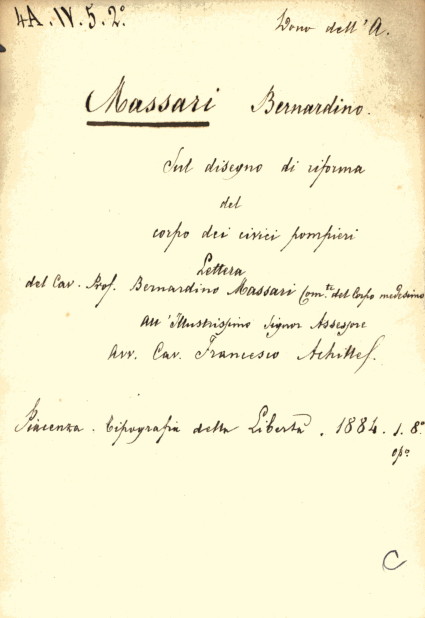 4A.IV.5.2°
Dono dell'A.
Massari Bernardino.
Sul disegno di riforma
del
corpo dei civici pompieri
Lettera
del Cav. Prof. Bernardino Massari Com.te del Corpo medesimo
all'Illustrissimo Signor Assessore
Avv. Cav. Francesco
Piacenza. Tipografia della Libertà. 1884. 1. 8°
op°
C